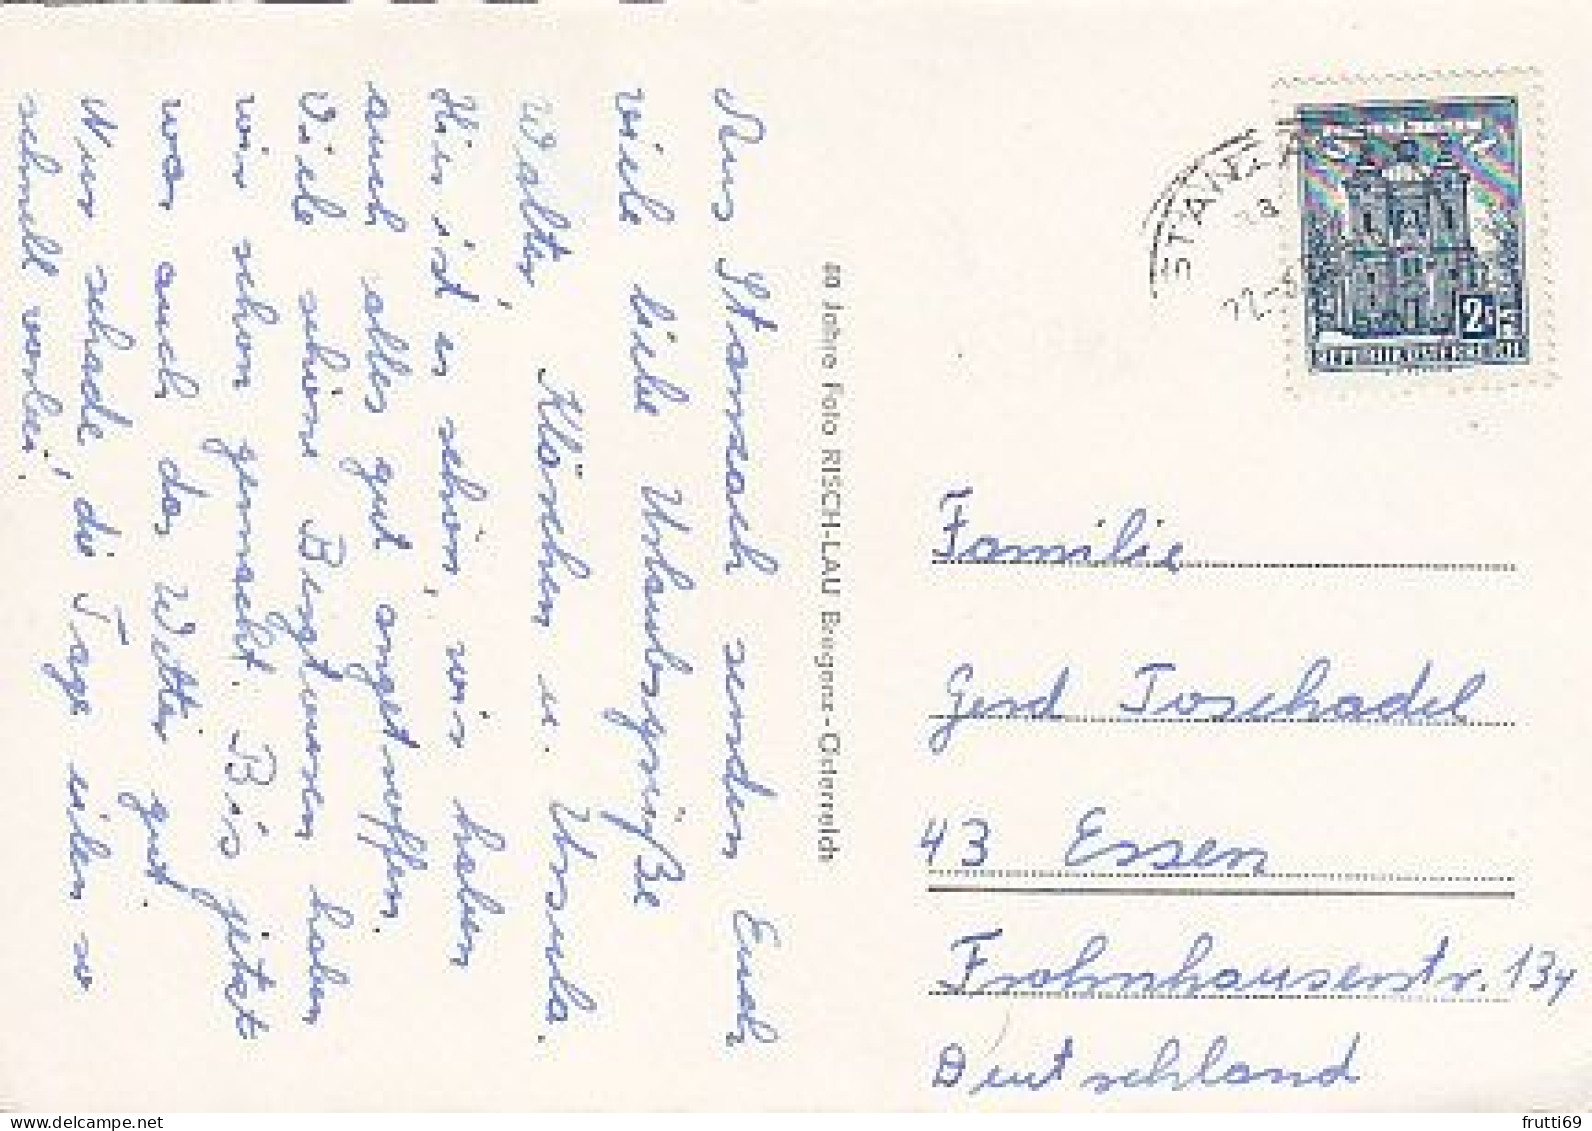 Aus Stanzach senden Euch
viele liebe Urlaubsgrüße
Walter, Kläschen u. Ursula.
Hier ist es schön, wir haben
auch alles gut angetroffen.
Viele schöne Bergtouren haben
wir schon gemacht. Bis jetzt
war auch das Wetter gut.
Nur schade, die Tage eilen so
schnell vorbei.
40 Jahre Foto RISCH-LAU Bregenz-Österreich
STANZA
22-
2S
REPUBLIK ÖSTERREICH
Familie
Gerd Toschadel
43 Essen
Frohnhauserstr. 134
Deutschland
frutti69